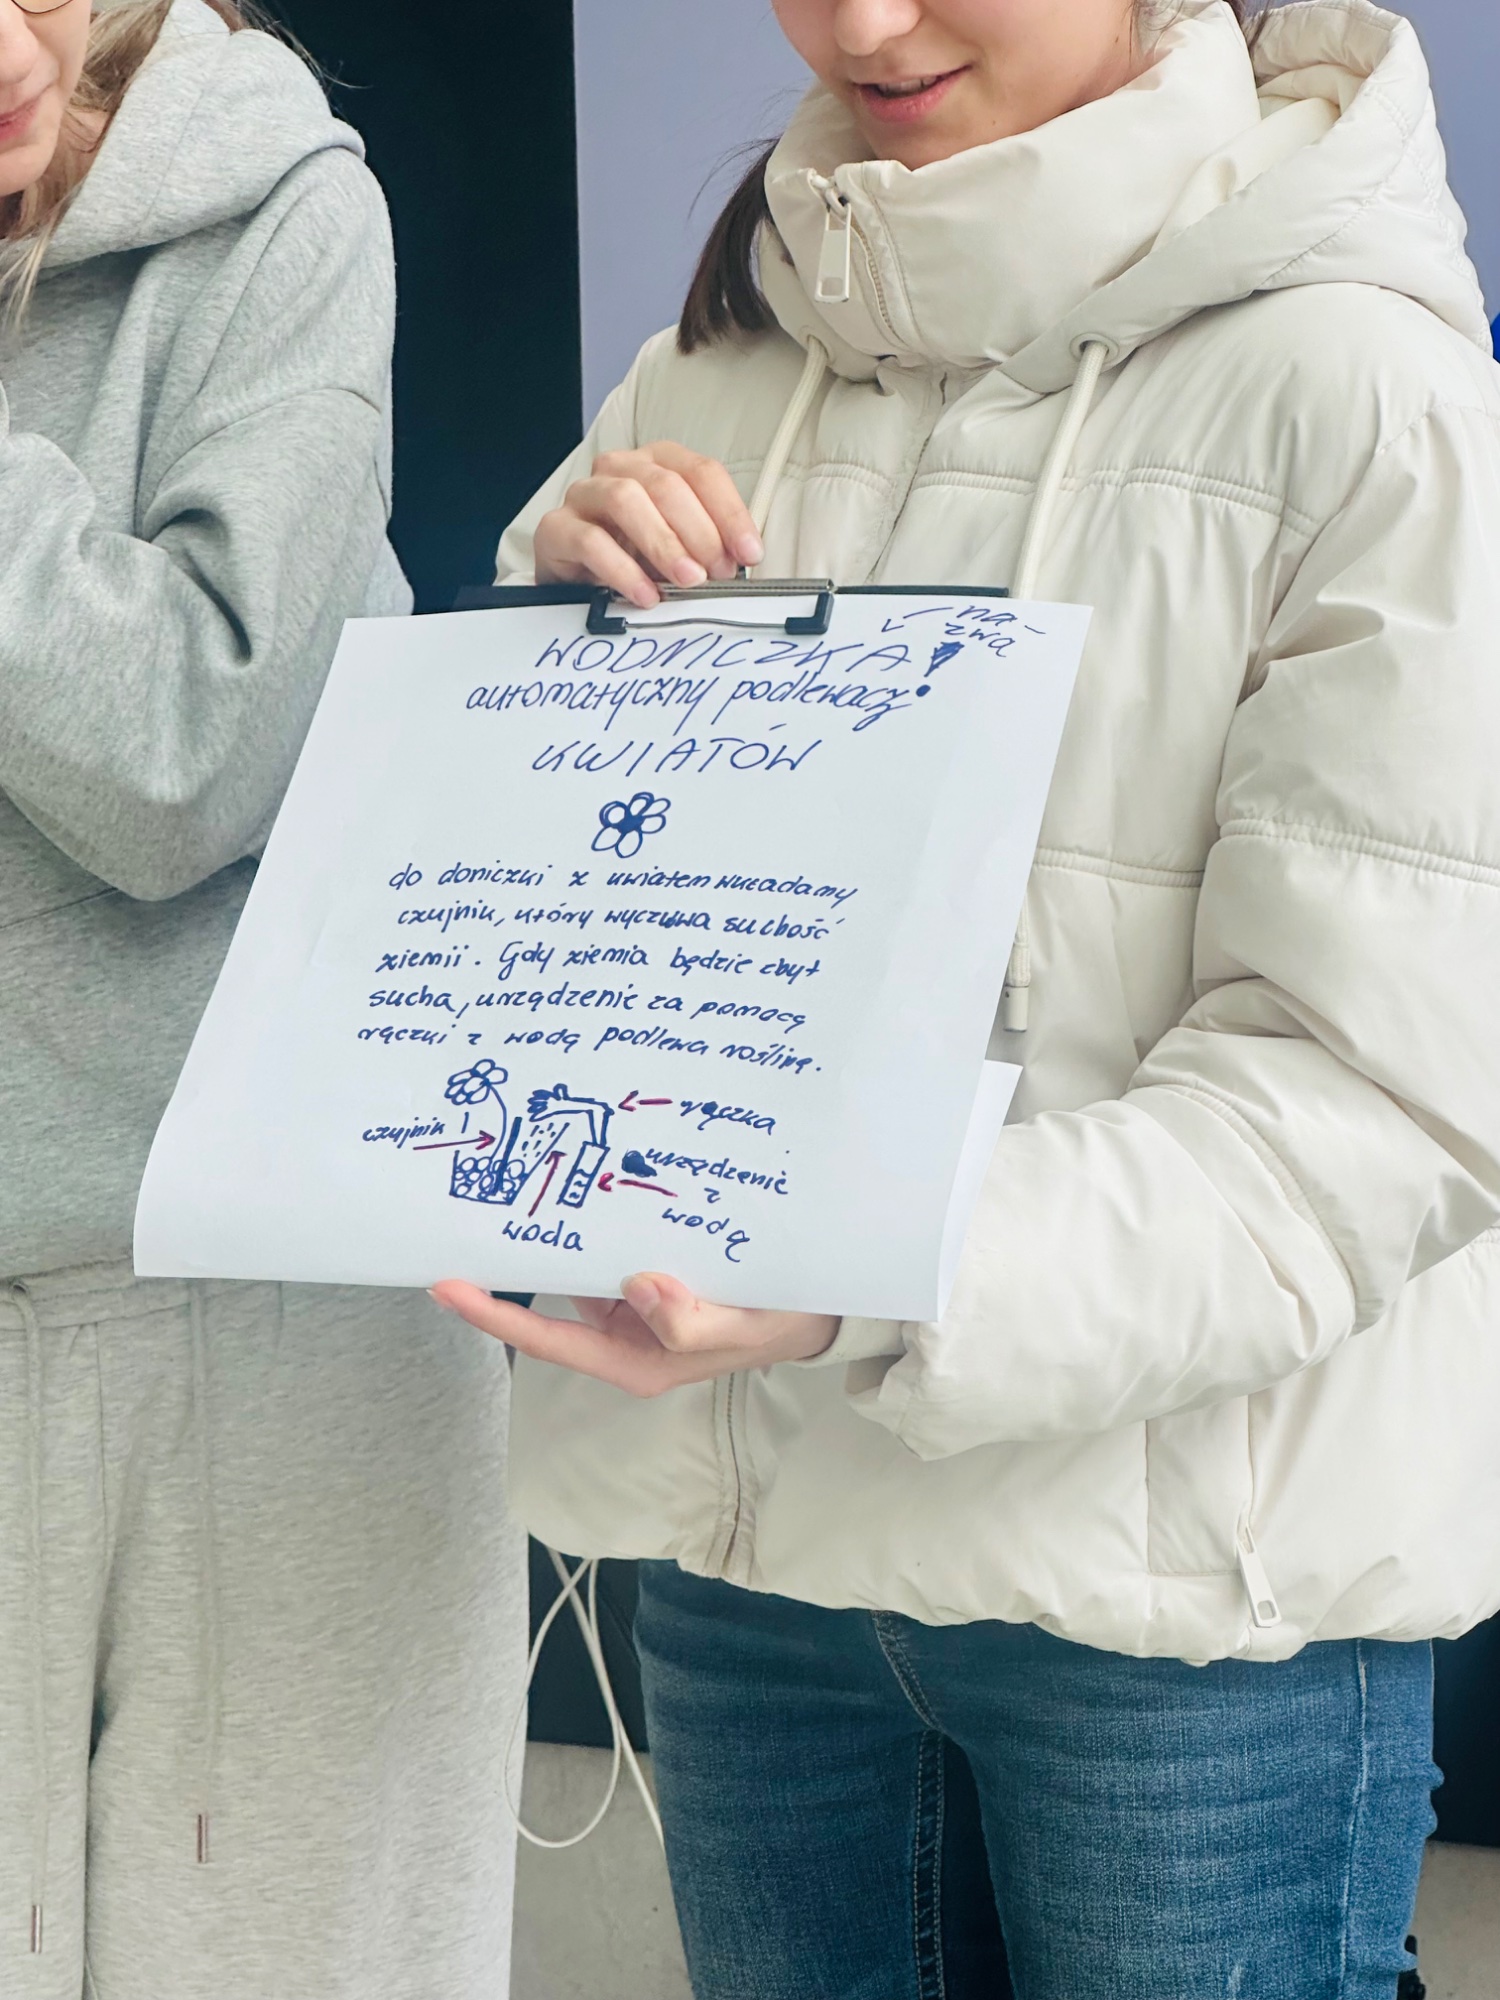 na-
zwa
WODNICZKA!
automatyczny podlewacz
KWIATÓW
do doniczki z kwiatem wkładamy
czujnik, który wyczuwa suchość
ziemii. Gdy ziemia będzie zbyt
sucha, urządzenie za pomocą
rączki z wodą podlewa roślinę.
czujnik
rączka
urządzenie
z
wodą
woda